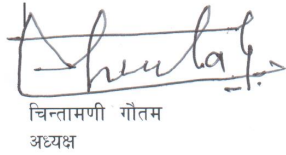 चिन्तामणी गौतम
अध्यक्ष